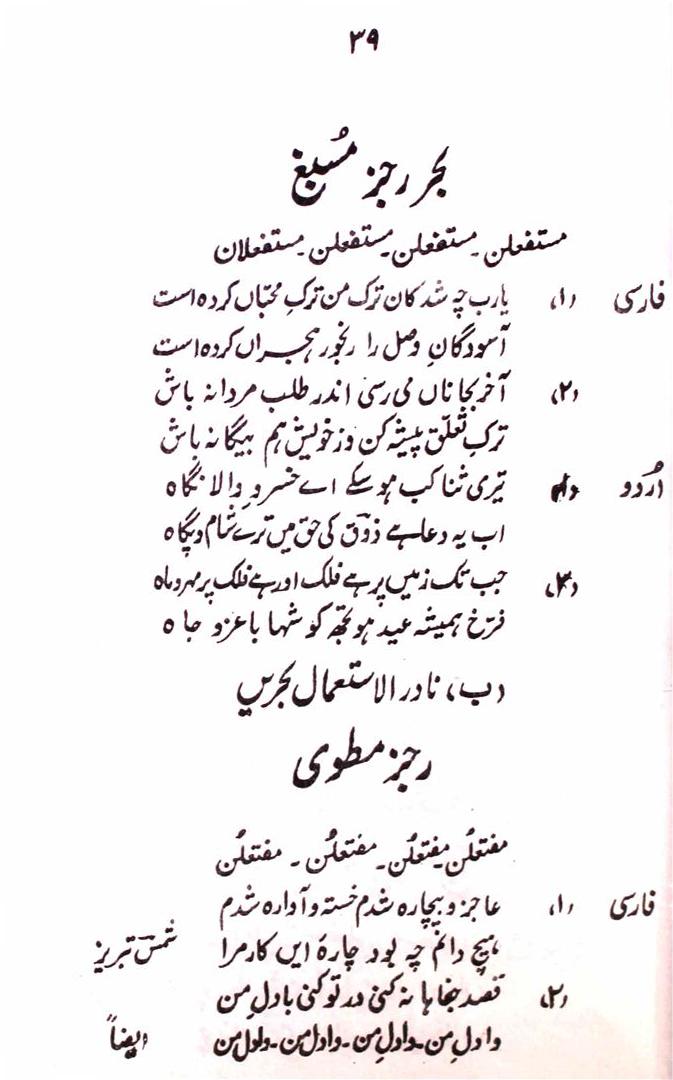 ۳۹
بحر رجز مُسبغ
مستفعلن۔ مستفعلن۔ مستفعلن۔ مستفعلان
فارسی (۱) یارب چہ شد کان ترکِ من ترکِ محبّاں کردہ است
آسودگانِ وصل را رنجور ہجراں کردہ است
(۲) آخر بجاناں می رسی اندر طلب مردانہ باش
ترکِ تعلّق پیشہ کن وز خویش ہم بیگانہ باش
اُردو (۱) تیری ثنا کب ہو سکے اے خسروِ والا نگاہ
اب یہ دعا ہے ذوؔق کی حق میں ترے شام و پگاہ
(۲) جب تک زمیں پر ہے فلک اور ہے فلک پر مہر و ماہ
فرّخ ہمیشہ عید ہو تجھ کو شہا با عز و جاہ
(ب) نادر الاستعمال بحریں
رجز مطوی
مفتعلُن۔ مفتعلُن۔ مفتعلُن۔ مفتعلُن
فارسی (۱) عاجز و بیچارہ شدم خستہ و آوارہ شدم
ہیچ دانم چہ بود چارۂ ایں کار مرا شمسؔ تبریز
(۲) قصد جفا ہا نہ کنی ور تو کنی با دلِ من
وا دلِ من۔ وا دلِ من۔ وا دل من۔ وا دل من ایضاً